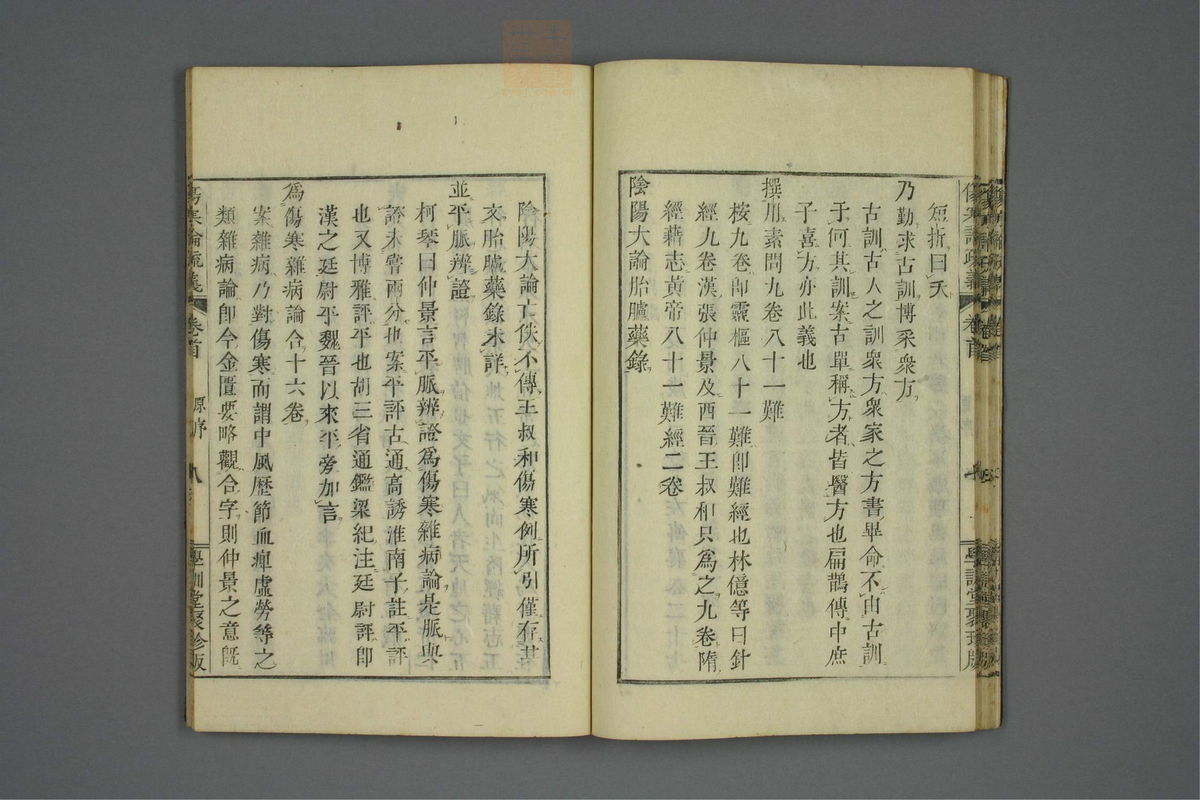 短折曰夭
乃勤求古訓博采衆方
古訓古人之訓衆方衆家之方書畢命不由古訓
于何其訓案古單稱方者皆醫方也扁鵲傳中庶
子喜方亦此義也
撰用素問九卷八十一難
桉九卷卽靈樞八十一難卽難經也林億等曰針
經九卷漢張仲景及西晉王叔和只爲之九卷隋
經藉志黃帝八十一難經二卷
陰陽大論胎臚藥錄
陰陽大論亡佚不傳王叔和傷寒例所引僅存其
文胎臚藥錄未詳
並平脈辨證
柯琴曰仲景言平脈辨證爲傷寒雜病論是脈與
證未嘗兩分也案平評古通高誘淮南子註平評
也又博雅評平也胡三省通鑑梁紀注廷尉評卽
漢之廷尉平魏晉以來平旁加言
爲傷寒雜病論合十六卷
案雜病乃對傷寒而謂中風歷節血痺虛勞等之
類雜病論卽今金匱要略觀合字則仲景之意旣
傷寒論疏義
卷首
原序
八
學訓堂聚珍版